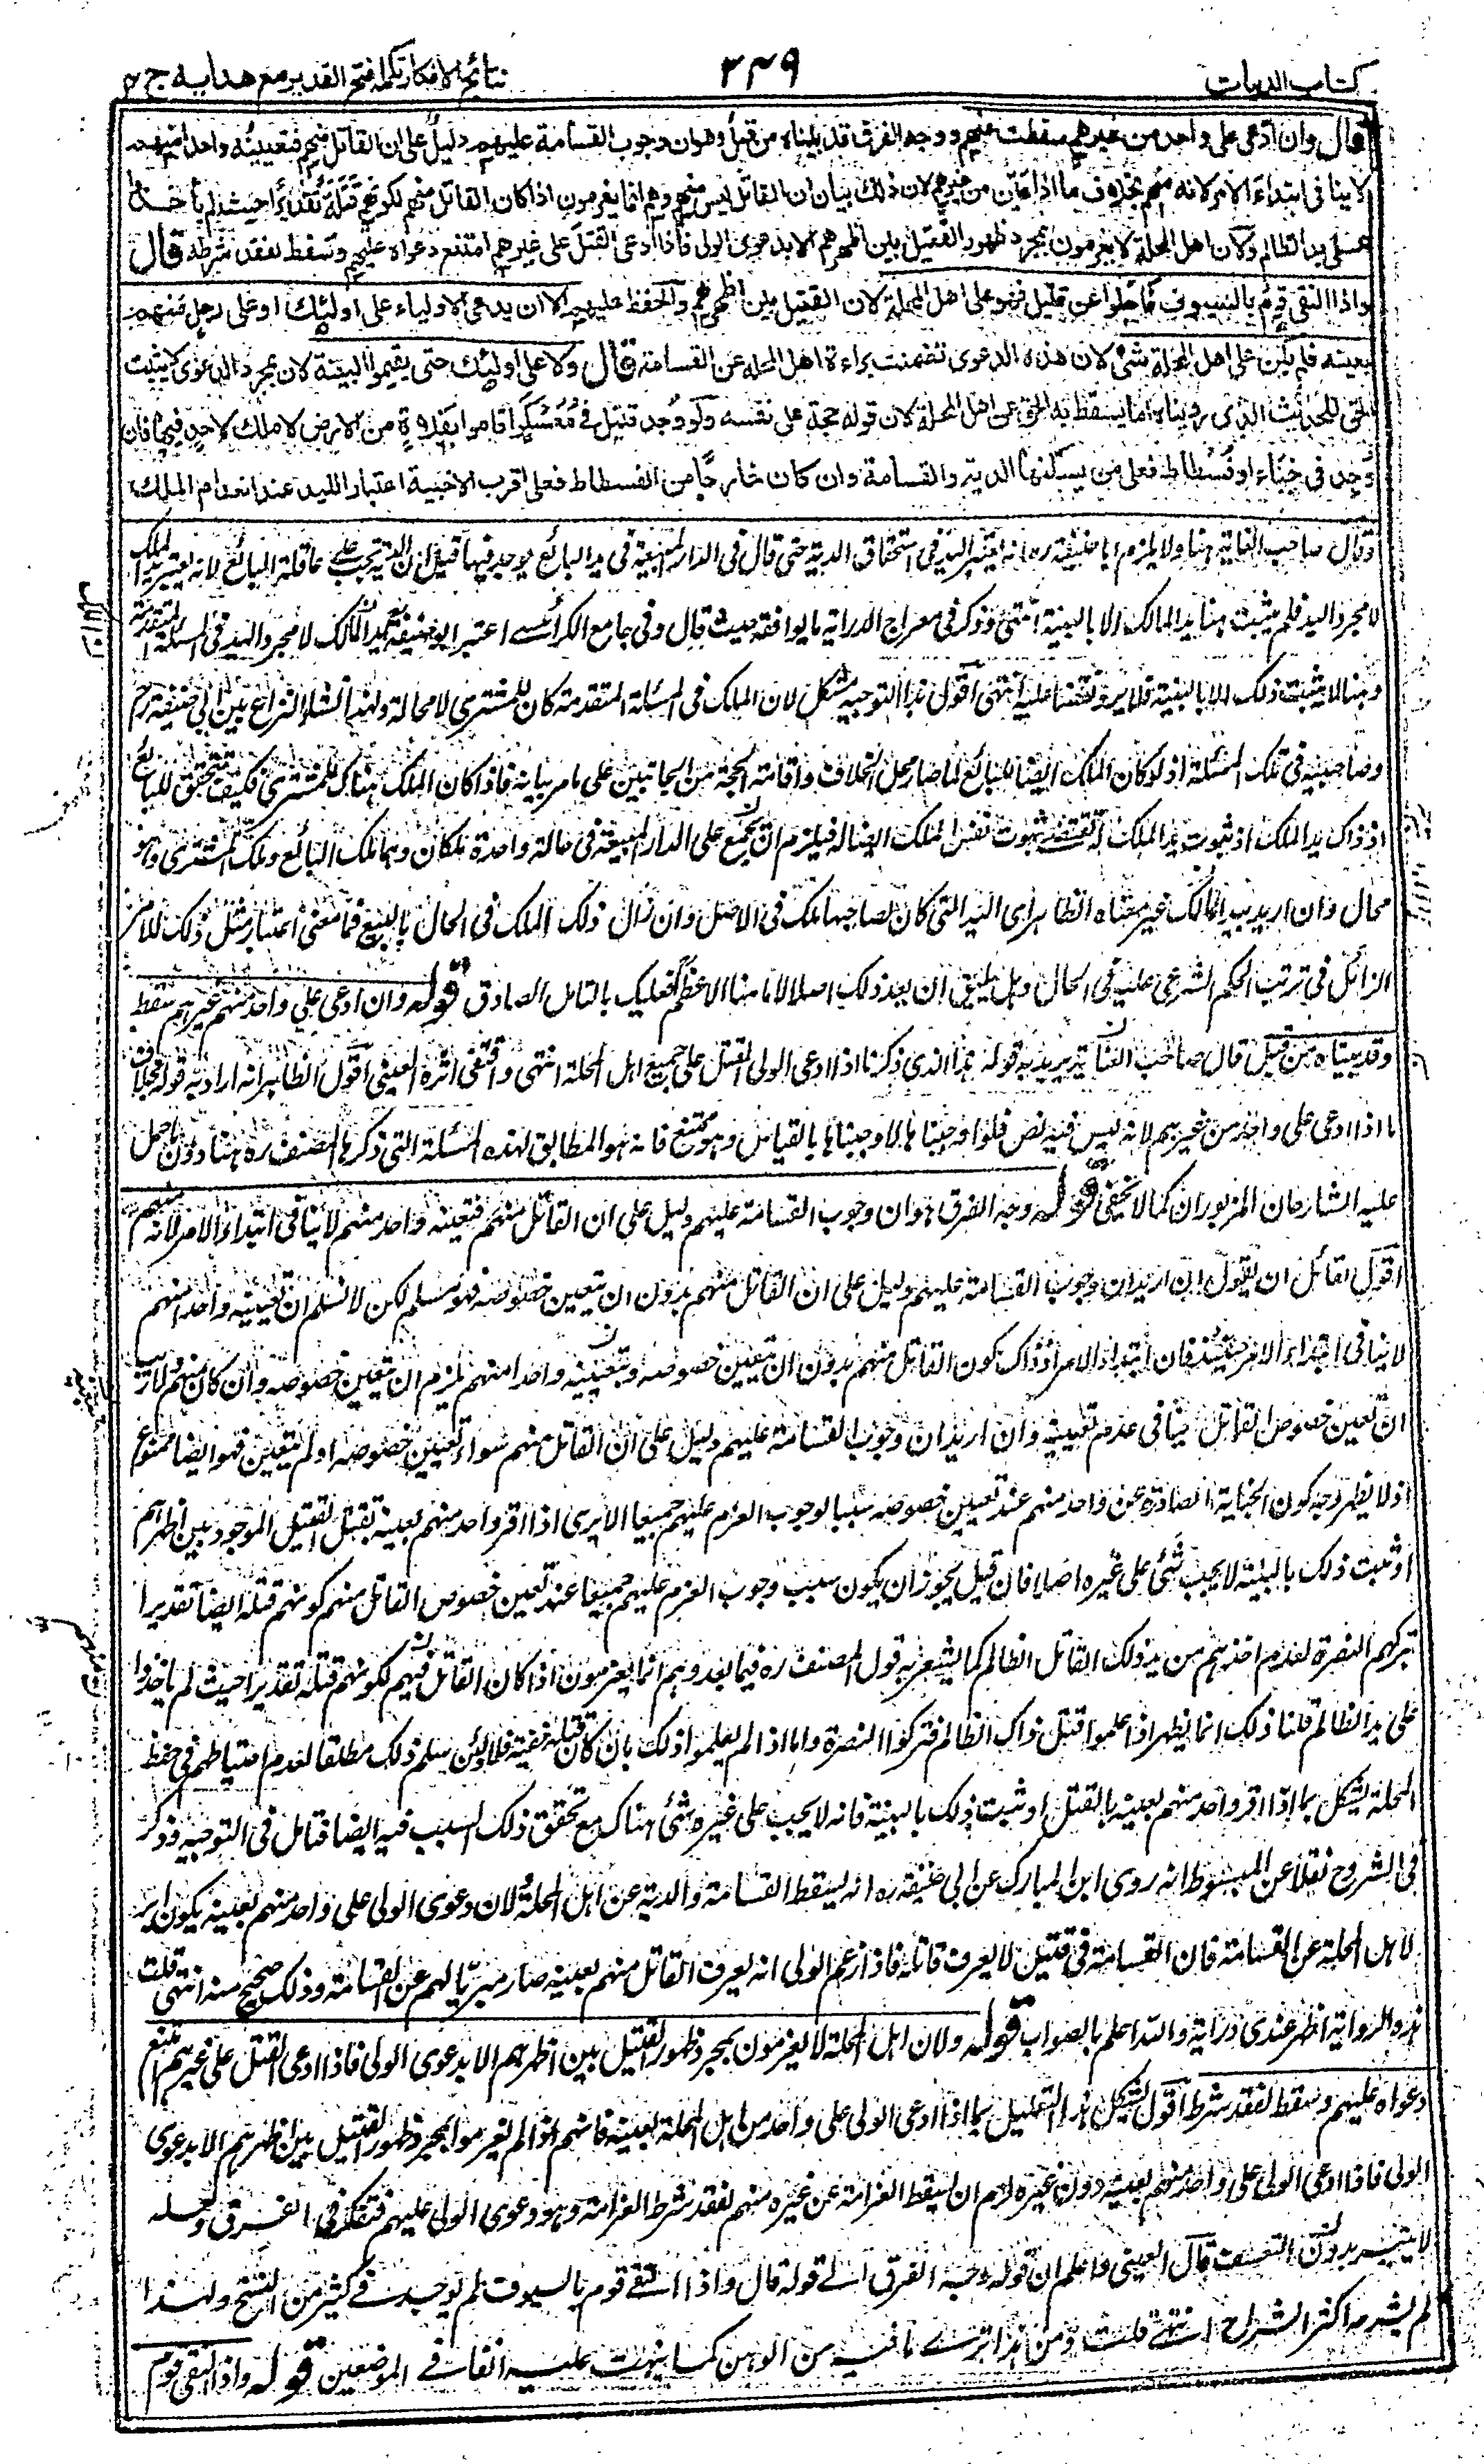 كتاب الديات
٣٤٩
نتائج الافكار تكملة فتح القدير مع هدايه ج ٤
قال وان ادعى على واحد من غيرهم سقطت عنهم ووجه الفرق قد بيناه من قبل وهو ان وجوب القسامة عليهم دليل على ان القاتل منهم فتعيينه واحدا منهم
لا ينافى ابتداء الامر لانه منهم بخلاف ما اذا عين من غيرهم لان ذلك بيان ان القاتل ليس منهم وهم انما يغرمون اذا كان القاتل منهم لكونهم قتلة تقديرا حيث لم يأخذوا
على يد الظالم ولان اهل المحلة لا يغرمون بمجرد ظهور القتيل بين اظهرهم الا بدعوى الولى فاذا ادعى القتل على غيرهم امتنع دعواه عليهم وسقط لفقد شرطه قال
واذا التقى قوم بالسيوف فاجلوا عن قتيل فهو على اهل المحلة لان القتيل بين اظهرهم والحفظ عليهم الا ان يدعى الاولياء على اولئك او على رجل منهم
بعينه فلم يكن على اهل المحلة شئ لان هذه الدعوى تضمنت براءة اهل المحلة عن القسامة قال ولا على اولئك حتى يقيموا البينة لان بمجرد الدعوى لا يثبت
الحق للحديث الذى رويناه اما يسقط به الحق عن اهل المحلة لان قوله حجة على نفسه ولو وجد قتيل فى معسكر اقاموا بفلاة من الارض لا ملك لاحد فيها فان
وجد فى خباء او فسطاط فعلى من يسكنها الدية والقسامة وان كان خارجا من الفسطاط فعلى اقرب الاخبية اعتبارا لليد عند انعدام الملك
وقال صاحب الغاية هنا ولا يلزم ابا حنيفة ره انه اعتبر اليد فى استحقاق الدية حتى قال فى الدار المبيعة فى يد البائع يوجد فيها قتيل ان الدية تجب على عاقلة البائع لانه يعتبر يد الملك
لا مجرد اليد فلم يثبت هنا يد المالك الا بالبينة انتهى وذكر فى معراج الدراية ما يوافقه حيث قال وفى جامع الكرابيسى اعتبر ابو حنيفة يد المالك لا مجرد اليد فى المسئلة المتقدمة
وهنا لا يثبت ذلك الا بالبينة فلا يرد نقضا عليه انتهى اقول هذا التوجيه مشكل لان الملك فى المسئلة المتقدمة كان للمشترى لا محالة ولهذا نشأ النزاع بين ابى حنيفة رح
وصاحبيه فى تلك المسئلة اذ لو كان الملك ايضا للبائع لما صار محل الخلاف واقامة الحجة من الجانبين على ما مر بيانه فاذا كان الملك هناك للمشترى فكيف يتحقق للبائع
اذ ذاك يد الملك اذ ثبوت يد الملك له يقتضى ثبوت نفس الملك ايضا له فيلزم ان يجتمع على الدار المبيعة فى حالة واحدة ملكان وهما ملك البائع وملك المشترى وهو
محال وان اريد بيد المالك غير معناه الظاهر اى اليد التى كان لصاحبها ملك فى الاصل وان زال ذلك الملك فى الحال بالبيع فما معنى اعتبار مثل ذلك الامر
الزائل فى ترتب الحكم الشرعى عليه فى الحال وهل يليق ان يعد ذلك اصلا لامامنا الاعظم فعليك بالتامل الصادق قوله وان ادعى على واحد منهم غيرهم سقط
وقد بيناه من قبل قال صاحب العناية يريد به قوله هذا الذى ذكرنا اذا ادعى الولى القتل على جميع اهل المحلة انتهى واقتفى اثره العينى اقول الظاهر انه اراد به قوله بخلاف
ما اذا ادعى على واحد من غيرهم لانه ليس فيه نص فلو اوجبنا هما لاوجبناهما بالقياس وهو ممتنع فانه هو المطابق لهذه المسئلة التى ذكرها المصنف ره هنا دون ما حمل
عليه الشارحان المزبوران كما لا يخفى قوله ووجه الفرق هو ان وجوب القسامة عليهم دليل على ان القاتل منهم فتعيينه واحدا منهم لا ينافى ابتداء الامر لانه منهم
اقول لقائل ان يقول ان اريد ان وجوب القسامة عليهم دليل على ان القاتل منهم بدون ان يتعين خصوصه فهو مسلم لكن لا نسلم ان تعيينه واحدا منهم
لا ينافى ابتداء الامر حينئذ فان ابتداء الامر اذ ذاك كون القاتل منهم بدون ان يتعين خصوصه وبتعيينه واحدا منهم يلزم ان يتعين خصوصه وان كان منهم ولا ريب
ان تعين خصوص القاتل ينافى عدم تعيينه وان اريد ان وجوب القسامة عليهم دليل على ان القاتل منهم سواء تعين خصوصه او لم يتعين فهو ايضا ممنوع
اذ لا يظهر وجه كون الجناية الصادرة عن واحد منهم عند تعيين خصوصه سببا لوجوب الغرم عليهم جميعا الا يرى اذا اقر واحد منهم بعينه بقتل القتيل الموجود بين اظهرهم
او ثبت ذلك بالبينة لا يجب شئ على غيره اصلا فان قيل يجوز ان يكون سبب وجوب الغرم عليهم جميعا عند تعين خصوص القاتل منهم كونهم قتلة ايضا تقديرا
بتركهم النصرة لعدم اخذهم من يد ذلك القاتل الظالم كما يشعر به قول المصنف ره فيما بعد وهم انما يغرمون اذا كان القاتل منهم لكونهم قتلة تقديرا حيث لم ياخذوا
على يد الظالم قلنا ذلك انما يظهر اذا علموا قتل ذاك الظالم فتركوا النصرة واما اذا لم يعلموا ذلك بان كان قتله خفية فلا ولئن سلم ذلك مطلقا لعدم احتياطهم فى حفظ
المحلة يشكل بما اذا اقر واحد منهم بعينه بالقتل او ثبت ذلك بالبينة فانه لا يجب على غيره شئ هناك مع تحقق ذلك السبب فيه ايضا فتامل فى التوجيه وذكر
فى الشروح نقلا عن المبسوط انه روى ابن المبارك عن ابى حنيفة ره انه يسقط القسامة والدية عن اهل المحلة لان دعوى الولى على واحد منهم بعينه يكون ابراء
لاهل المحلة عن القسامة فان القسامة فى قتيل لا يعرف قاتله فاذا زعم الولى انه يعرف القاتل منهم بعينه صار مبريا لهم عن القسامة وذلك صحيح منه انتهى قلت
هذه الرواية اظهر عندى دراية والله اعلم بالصواب قوله ولان اهل المحلة لا يغرمون بمجرد ظهور القتيل بين اظهرهم الا بدعوى الولى فاذا ادعى القتل على غيرهم امتنع
دعواه عليهم وسقط لفقد شرط اقول يشكل هذا التعليل بما اذا ادعى الولى على واحد من اهل المحلة بعينه فانهم اذا لم يغرموا بمجرد ظهور القتيل بين اظهرهم الا بدعوى
الولى فاذا ادعى الولى على واحد منهم بعينه دون غيره لزم ان يسقط الغرامة عن غيره منهم لفقد شرط الغرامة وهو دعوى الولى عليهم فتفكر فى الفرق ولعله
لا يتيسر بدون التعسف قال العينى واعلم ان قوله وجه الفرق الى قوله قال واذا التقى قوم بالسيوف لم يوجد فى كثير من النسخ ولهذا
لم يشرحه اكثر الشراح انتهى قلت ومن هذا ترى ما فيه من الوهن كما نبهت عليه انفا فى الموضعين قوله واذا التقى قوم